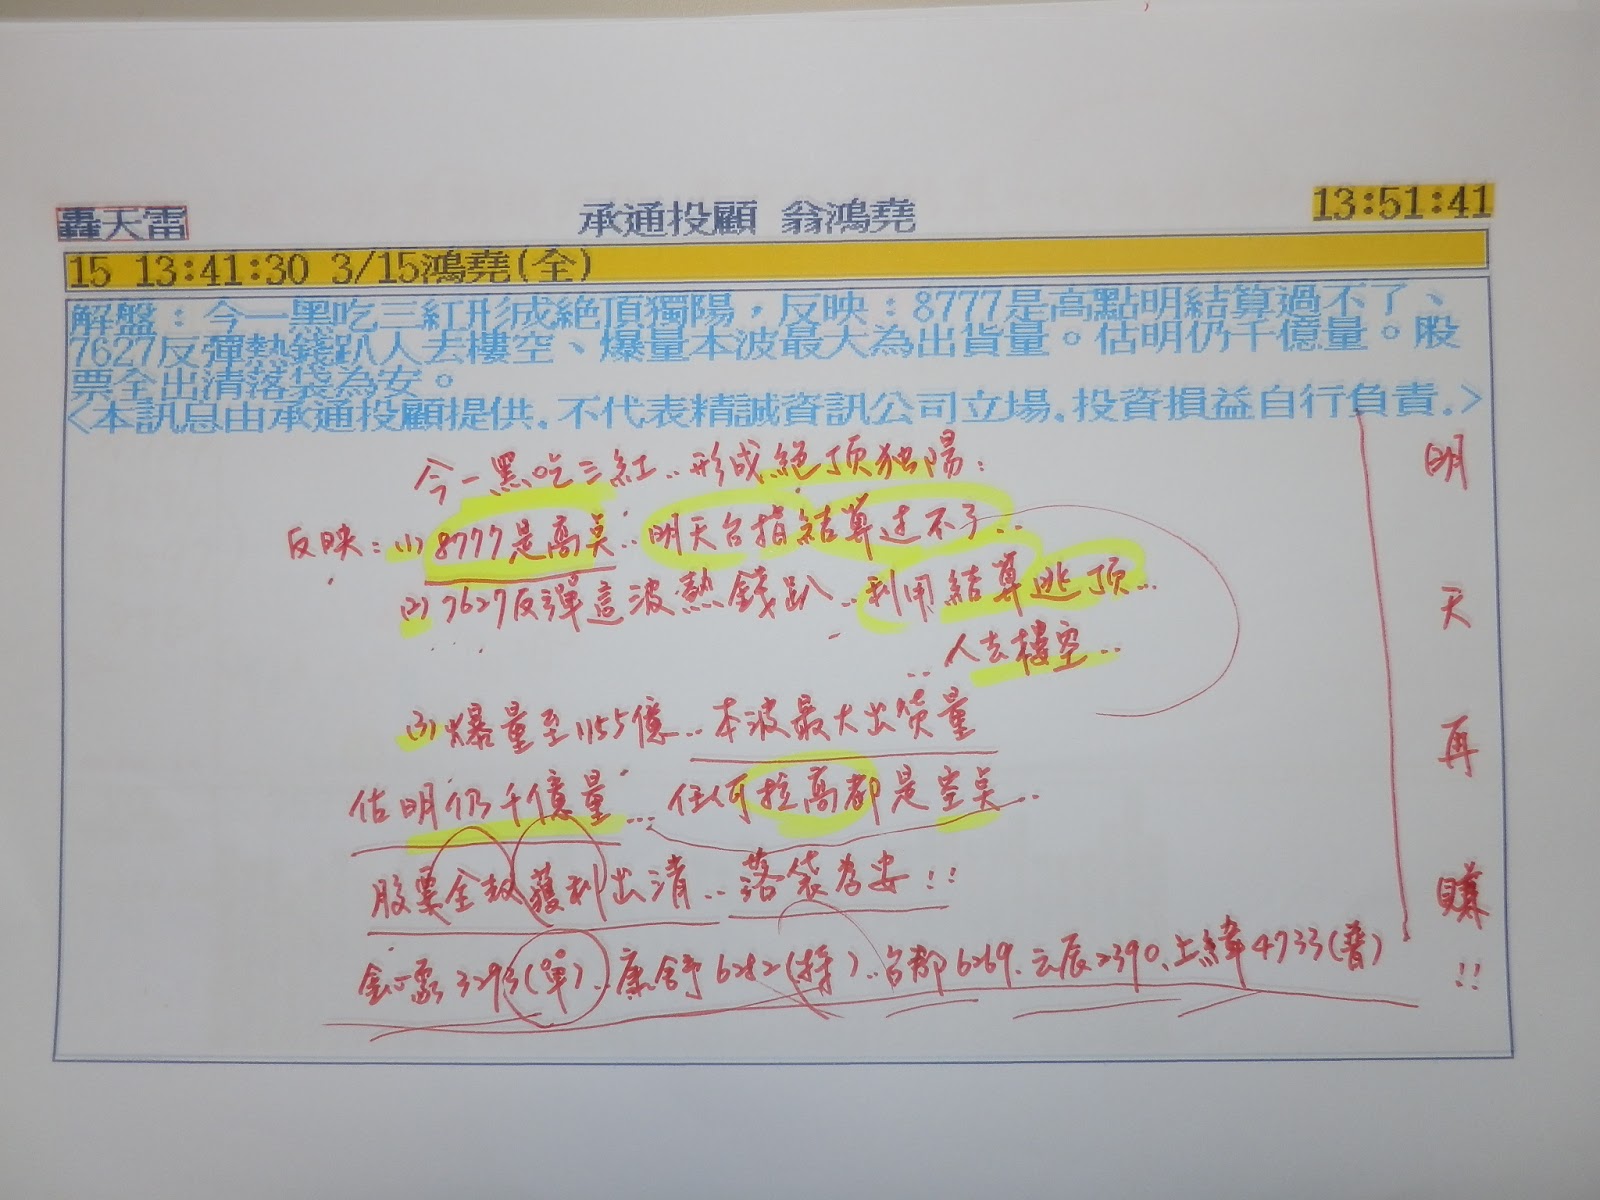 轟天雷
承通投顧 翁鴻堯
13:51:41
15 13:41:30 3/15鴻堯(全)
解盤：今一黑吃三紅形成絕頂獨陽，反映：8777是高點明結算過不了、
7627反彈熱錢趴人去樓空、爆量本波最大為出貨量。估明仍千億量。股
票全出清落袋為安。
<本訊息由承通投顧提供.不代表精誠資訊公司立場.投資損益自行負責.>
今一黑吃三紅..形成絕頂独陽：
反映：(1) 8777是高点..明天台指結算过不了..
(2) 7627反彈這波熱錢趴..利用結算逃頂...
..人去樓空..
(3) 爆量至1155億..本波最大出貨量
估明仍千億量...任何拉高都是空点..
股票全数獲利出清..落袋為安!!
鈊象3293(單)..康舒6282(採)..台郡6269.云辰2390.上緯4733(普)
明天再賺!!